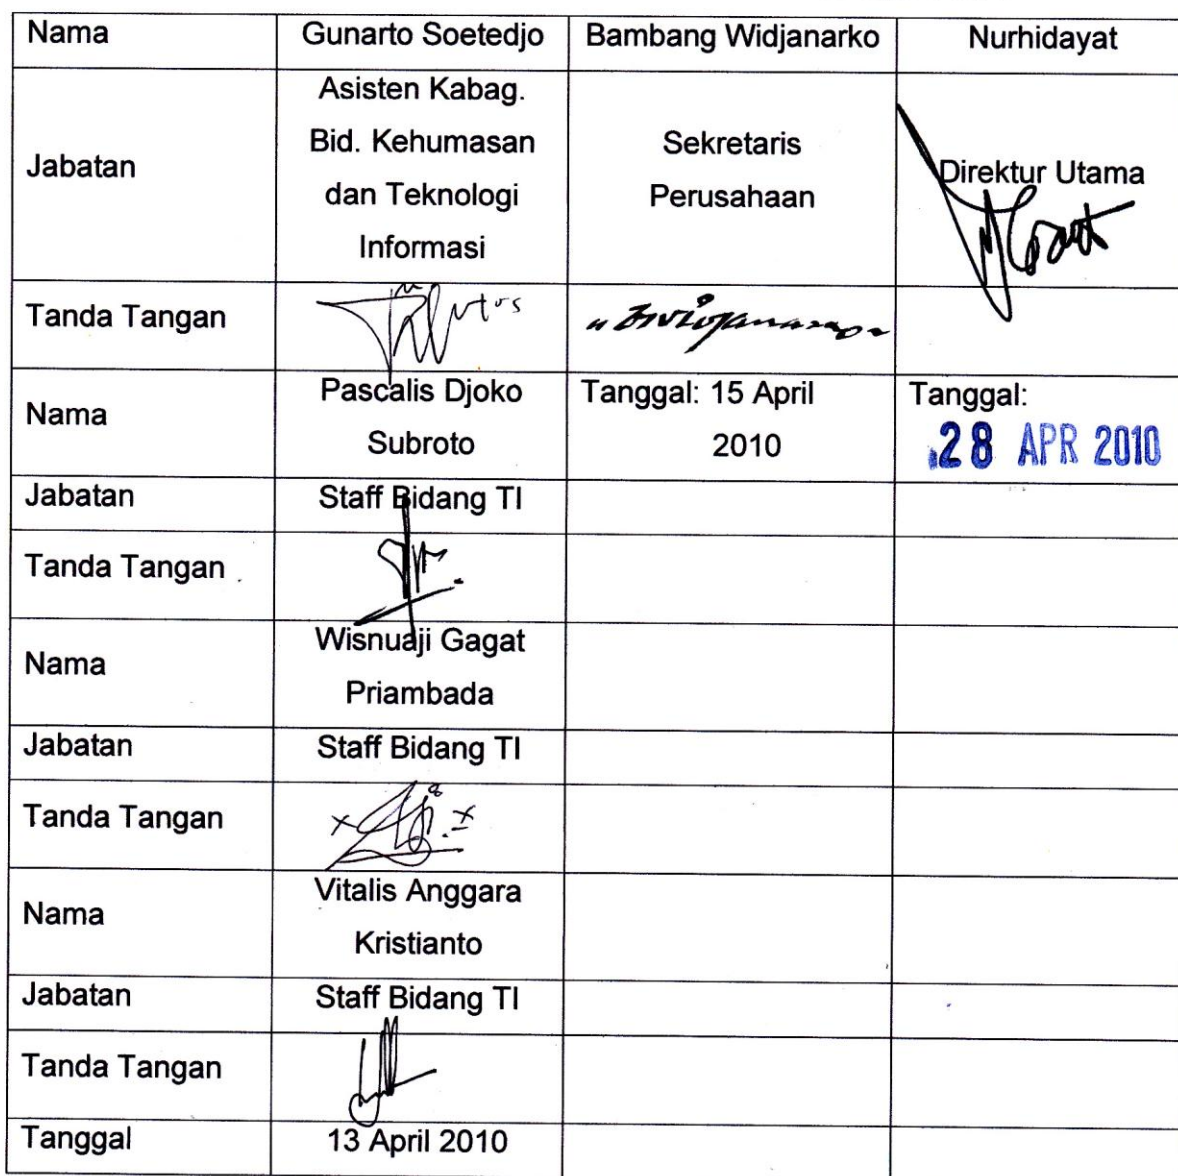 Nama Gunarto Soetedjo Bambang Widjanarko Nurhidayat
Jabatan
Asisten Kabag.
Bid. Kehumasan
dan Teknologi
Informasi
Sekretaris
Perusahaan
Direktur Utama
Tanda Tangan
Nama
Pascalis Djoko
Subroto
Tanggal: 15 April
2010
Tanggal:
28 APR 2010
Jabatan Staff Bidang TI
Tanda Tangan
Nama
Wisnuaji Gagat
Priambada
Jabatan Staff Bidang TI
Tanda Tangan
Nama
Vitalis Anggara
Kristianto
Jabatan Staff Bidang TI
Tanda Tangan
Tanggal 13 April 2010